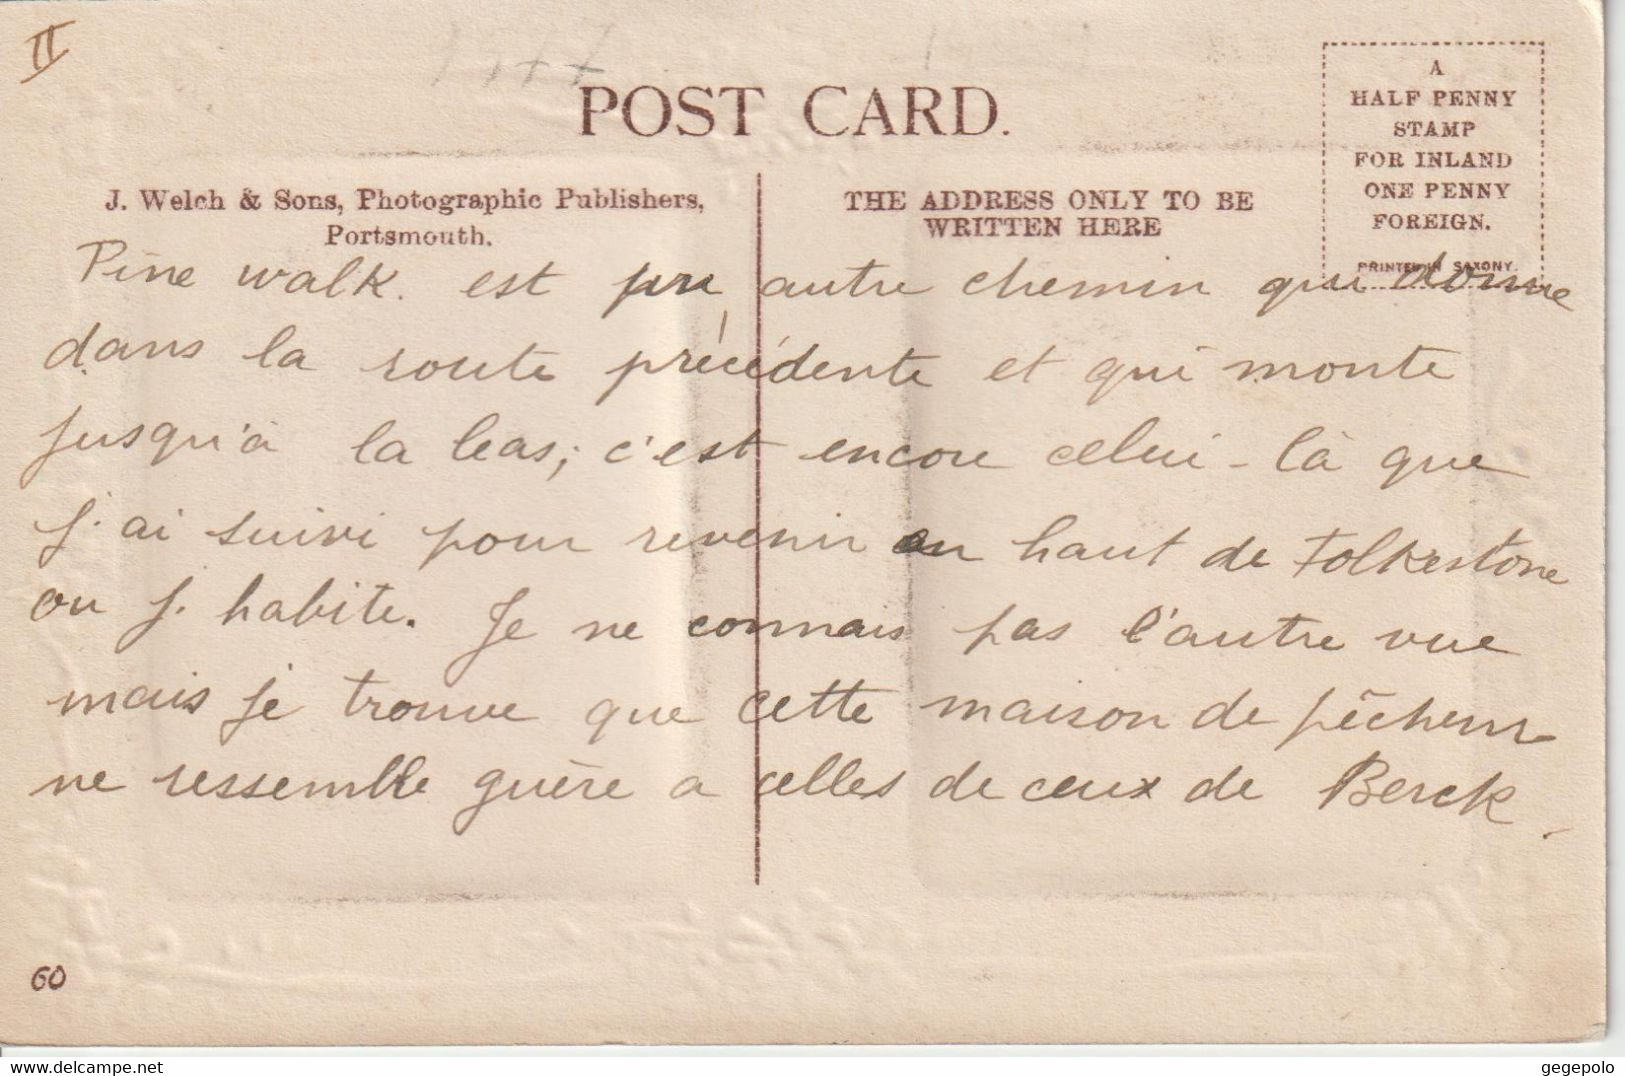 II
POST CARD.
A
HALF PENNY
STAMP
FOR INLAND
ONE PENNY
FOREIGN.
PRINTED IN SAXONY.
J. Welch & Sons, Photographic Publishers,
Portsmouth.
THE ADDRESS ONLY TO BE
WRITTEN HERE
Pine walk. est un autre chemin qui donne
dans la route précédente et qui monte
jusqu'à la leas; c'est encore celui-là que
j'ai suivi pour revenir en haut de Folkestone
ou j'habite. Je ne connais pas l'autre vue
mais je trouve que cette maison de pêcheur
ne ressemble guère a celles de ceux de Berck.
60
gegepolo